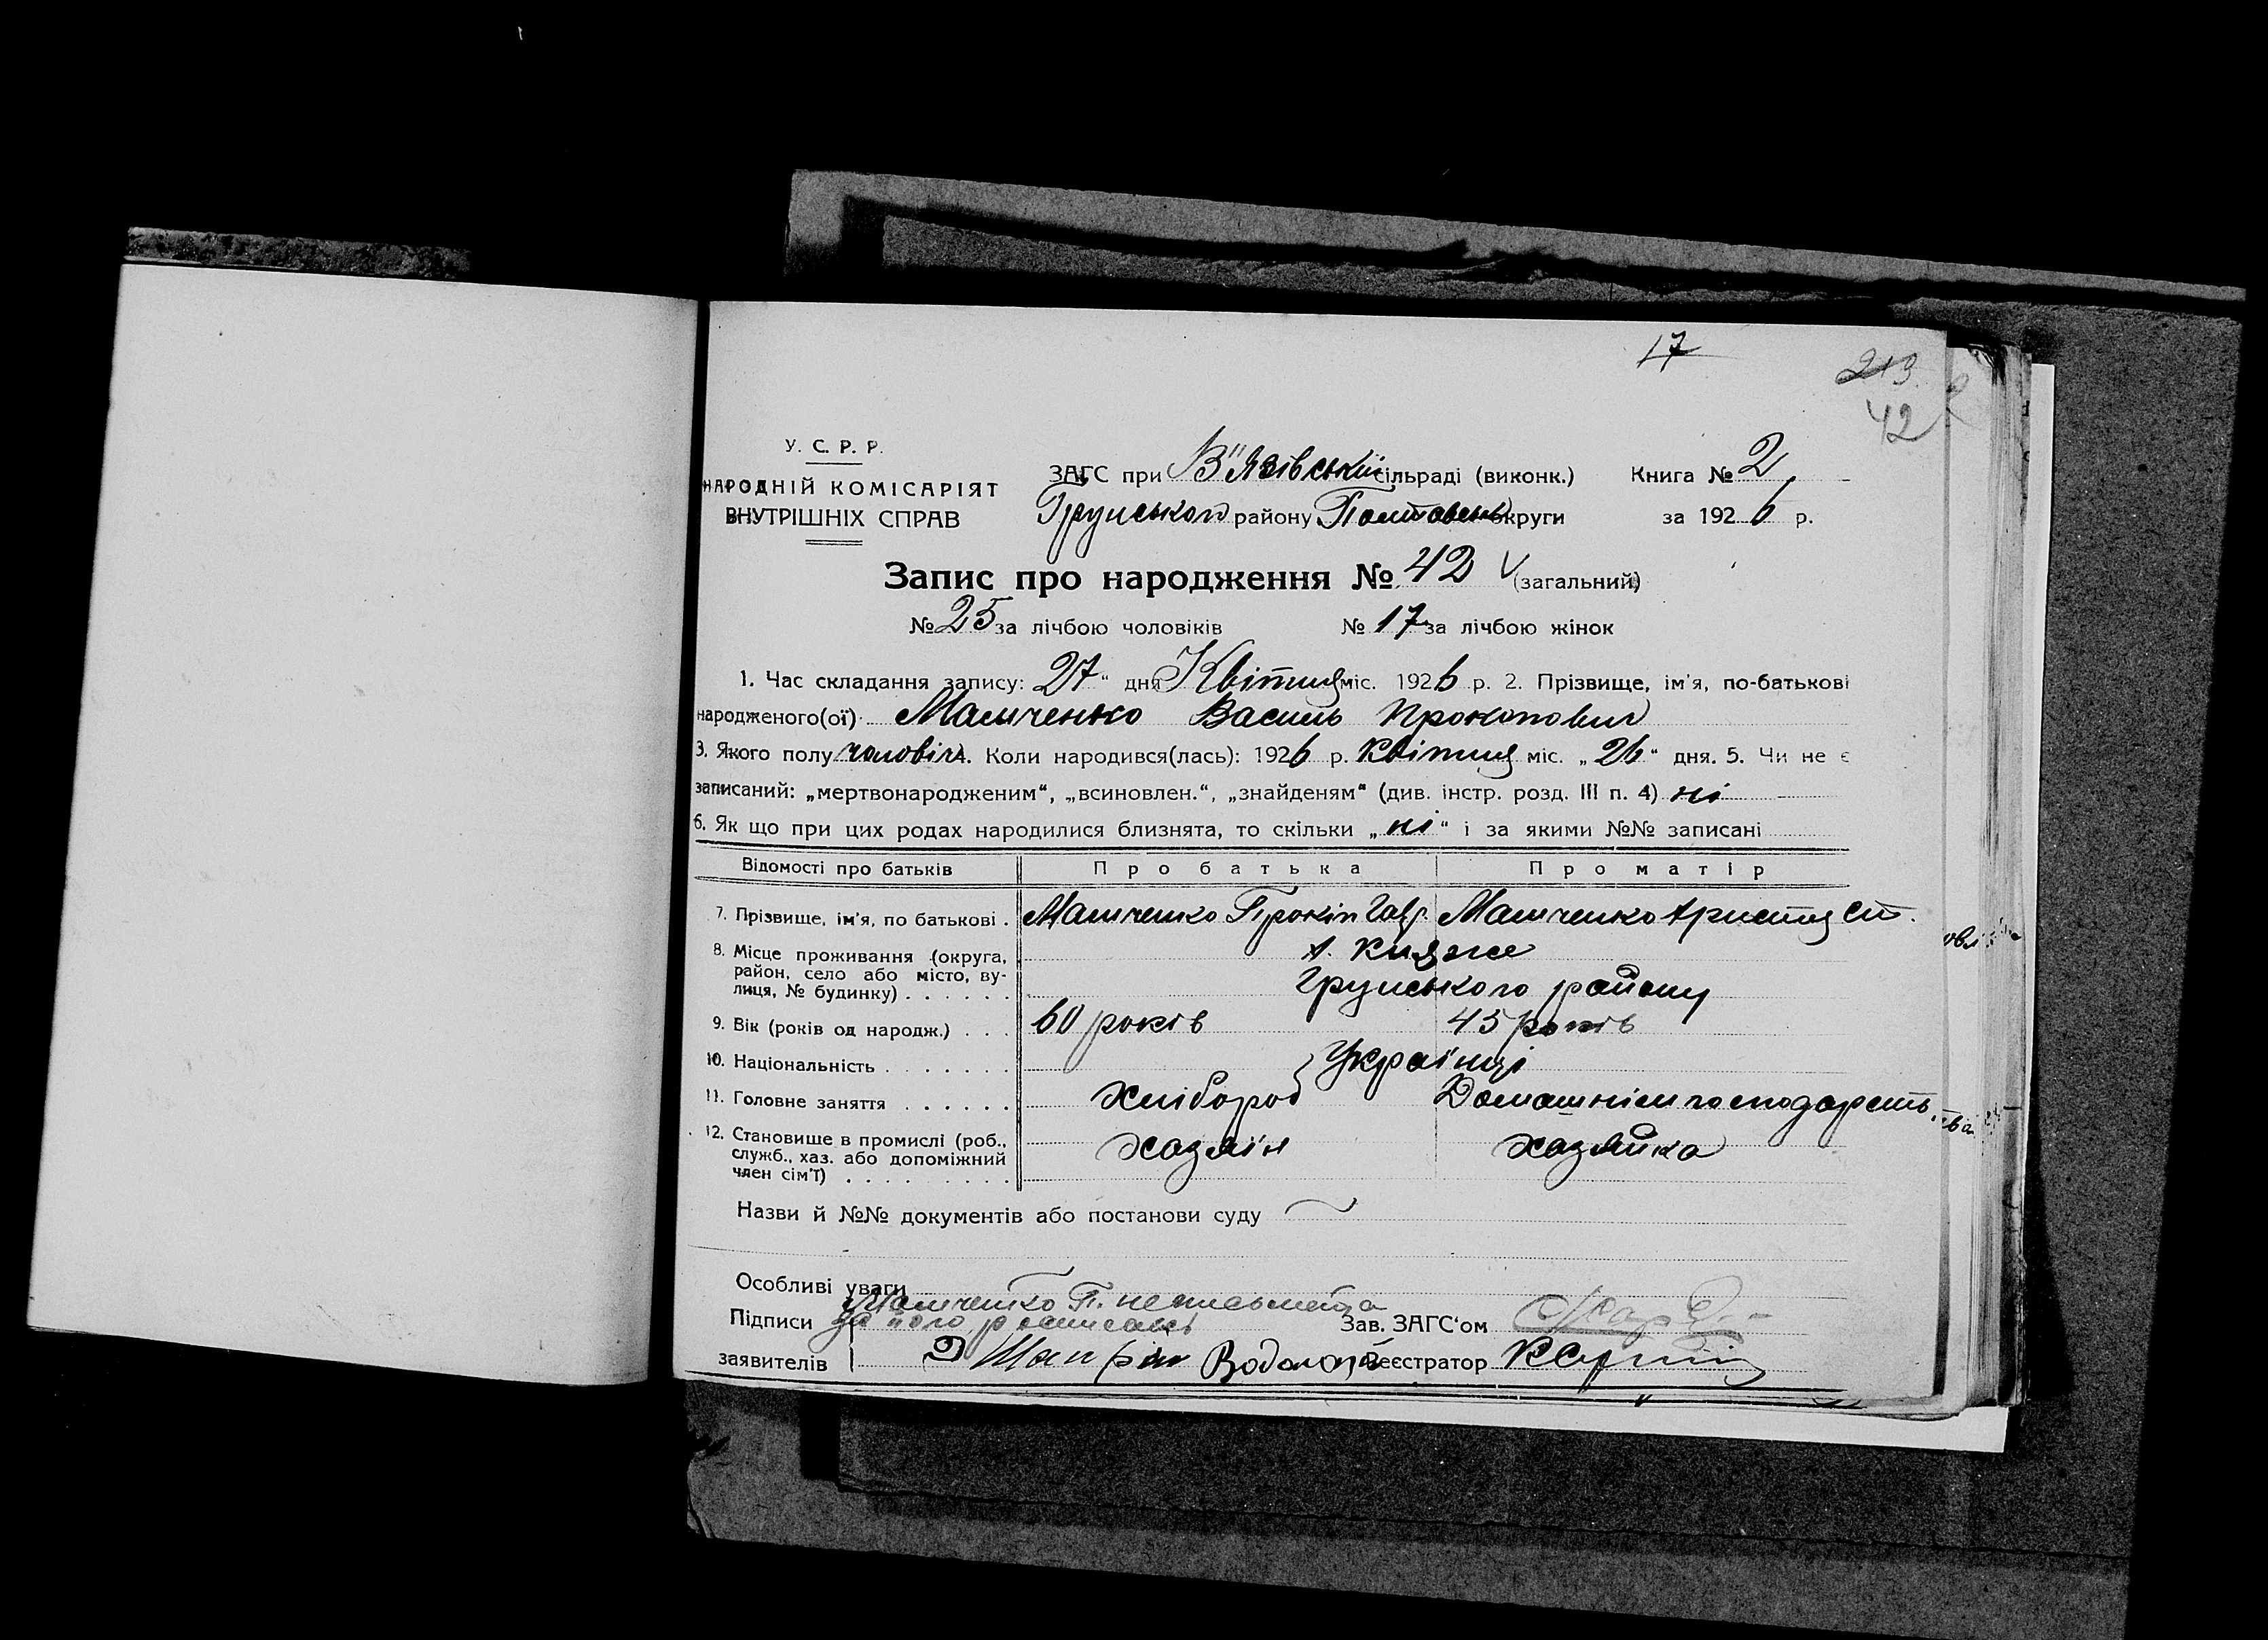 17
213
42
У. С. Р. Р.
НАРОДНІЙ КОМІСАРІЯТ
ВНУТРІШНІХ СПРАВ
ЗАГС при В"язівській сільраді (виконк.) Книга № 2
Грунського району Полтавськ округи за 1926 р.
Запис про народження № 42 (загальний)
№ 25 за лічбою чоловіків № 17 за лічбою жінок
1. Час складання запису: 27 " дня Квітня міс. 1926 р. 2. Прізвище, ім'я, по-батькові
народженого(ої) Мамченко Василь Прокопович
3. Якого полу чоловіч. Коли народився(лась): 1926 р. Квітня міс. „ 26 " дня. 5. Чи не є
записаний: „мертвонародженим", „всиновлен.", „знайденям" (див. інстр. розд. III п. 4) ні
6. Як що при цих родах народилися близнята, то скільки „ ні " і за якими №№ записані
Відомості про батьків Про батька Про матір
7. Прізвище, ім'я, по батькові . Мамченко Прокіп Гавр. Мамченко Христя Ст.
8. Місце проживання (округа, район, село або місто, вулиця, № будинку) . . . . . . х. Княже
Грунського району
9. Вік (років од народж.) . . . 60 років 45 років
10. Національність . . . . . . . Українці
11. Головне заняття . . . . . . Хлібороб Домашнім господарств.
12. Становище в промислі (роб., служб., хаз. або допоміжний член сім'ї) . . . . . . . . . хазяїн хазяйка
Назви й №№ документів або постанови суду
Особливі уваги
Мамченко П. неписьмений а
Підписи за його росписавсь Зав. ЗАГС'ом
заявителів Реєстратор